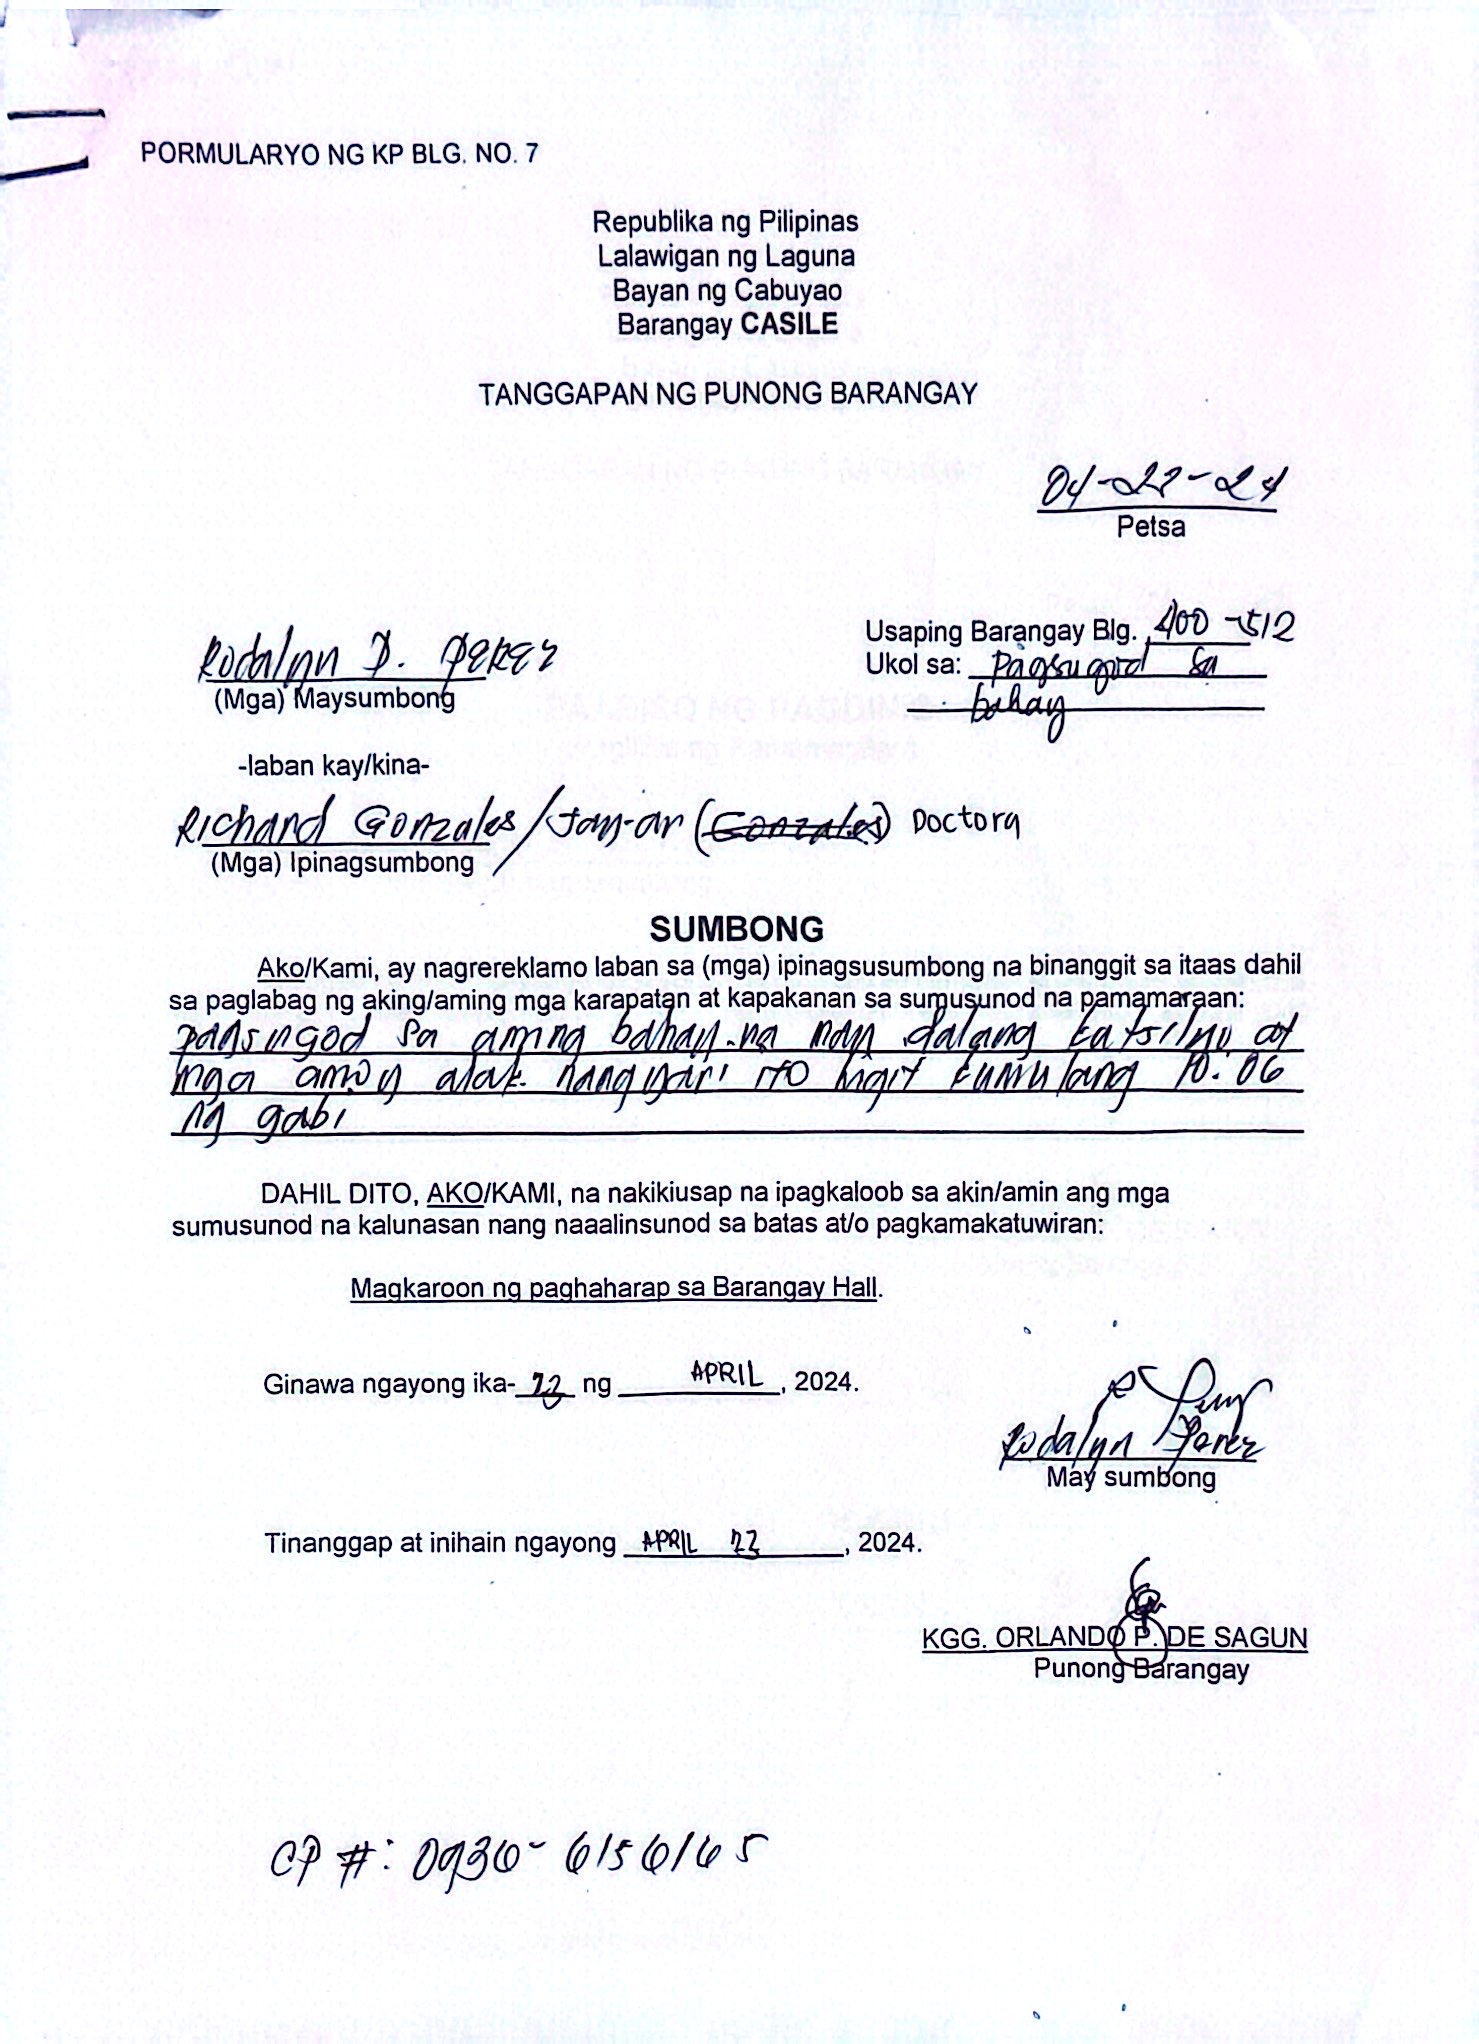 PORMULARYO NG KP BLG. NO. 7
Republika ng Pilipinas
Lalawigan ng Laguna
Bayan ng Cabuyao
Barangay CASILE
TANGGAPAN NG PUNONG BARANGAY
04-22-24
Petsa
Rodalyn D. Perez
(Mga) Maysumbong
Usaping Barangay Blg. 400-512
Ukol sa: Pagsugod sa
bahay
-laban kay/kina-
Richard Gonzales/Jay-ar (Gonzales) Doctora
(Mga) Ipinagsumbong
SUMBONG
Ako/Kami, ay nagrereklamo laban sa (mga) ipinagsusumbong na binanggit sa itaas dahil
sa paglabag ng aking/aming mga karapatan at kapakanan sa sumusunod na pamamaraan:
pagsugod sa aming bahay na may dalang katsilyo at
mga amoy alak. nangyari ito higit kumulang 10:06
ng gabi
DAHIL DITO, AKO/KAMI, na nakikiusap na ipagkaloob sa akin/amin ang mga
sumusunod na kalunasan nang naaalinsunod sa batas at/o pagkamakatuwiran:
Magkaroon ng paghaharap sa Barangay Hall.
Ginawa ngayong ika- ng APRIL, 2024.
Rodalyn Perez
May sumbong
Tinanggap at inihain ngayong APRIL 22, 2024.
KGG. ORLANDO P. DE SAGUN
Punong Barangay
CP #: 0936-6156165